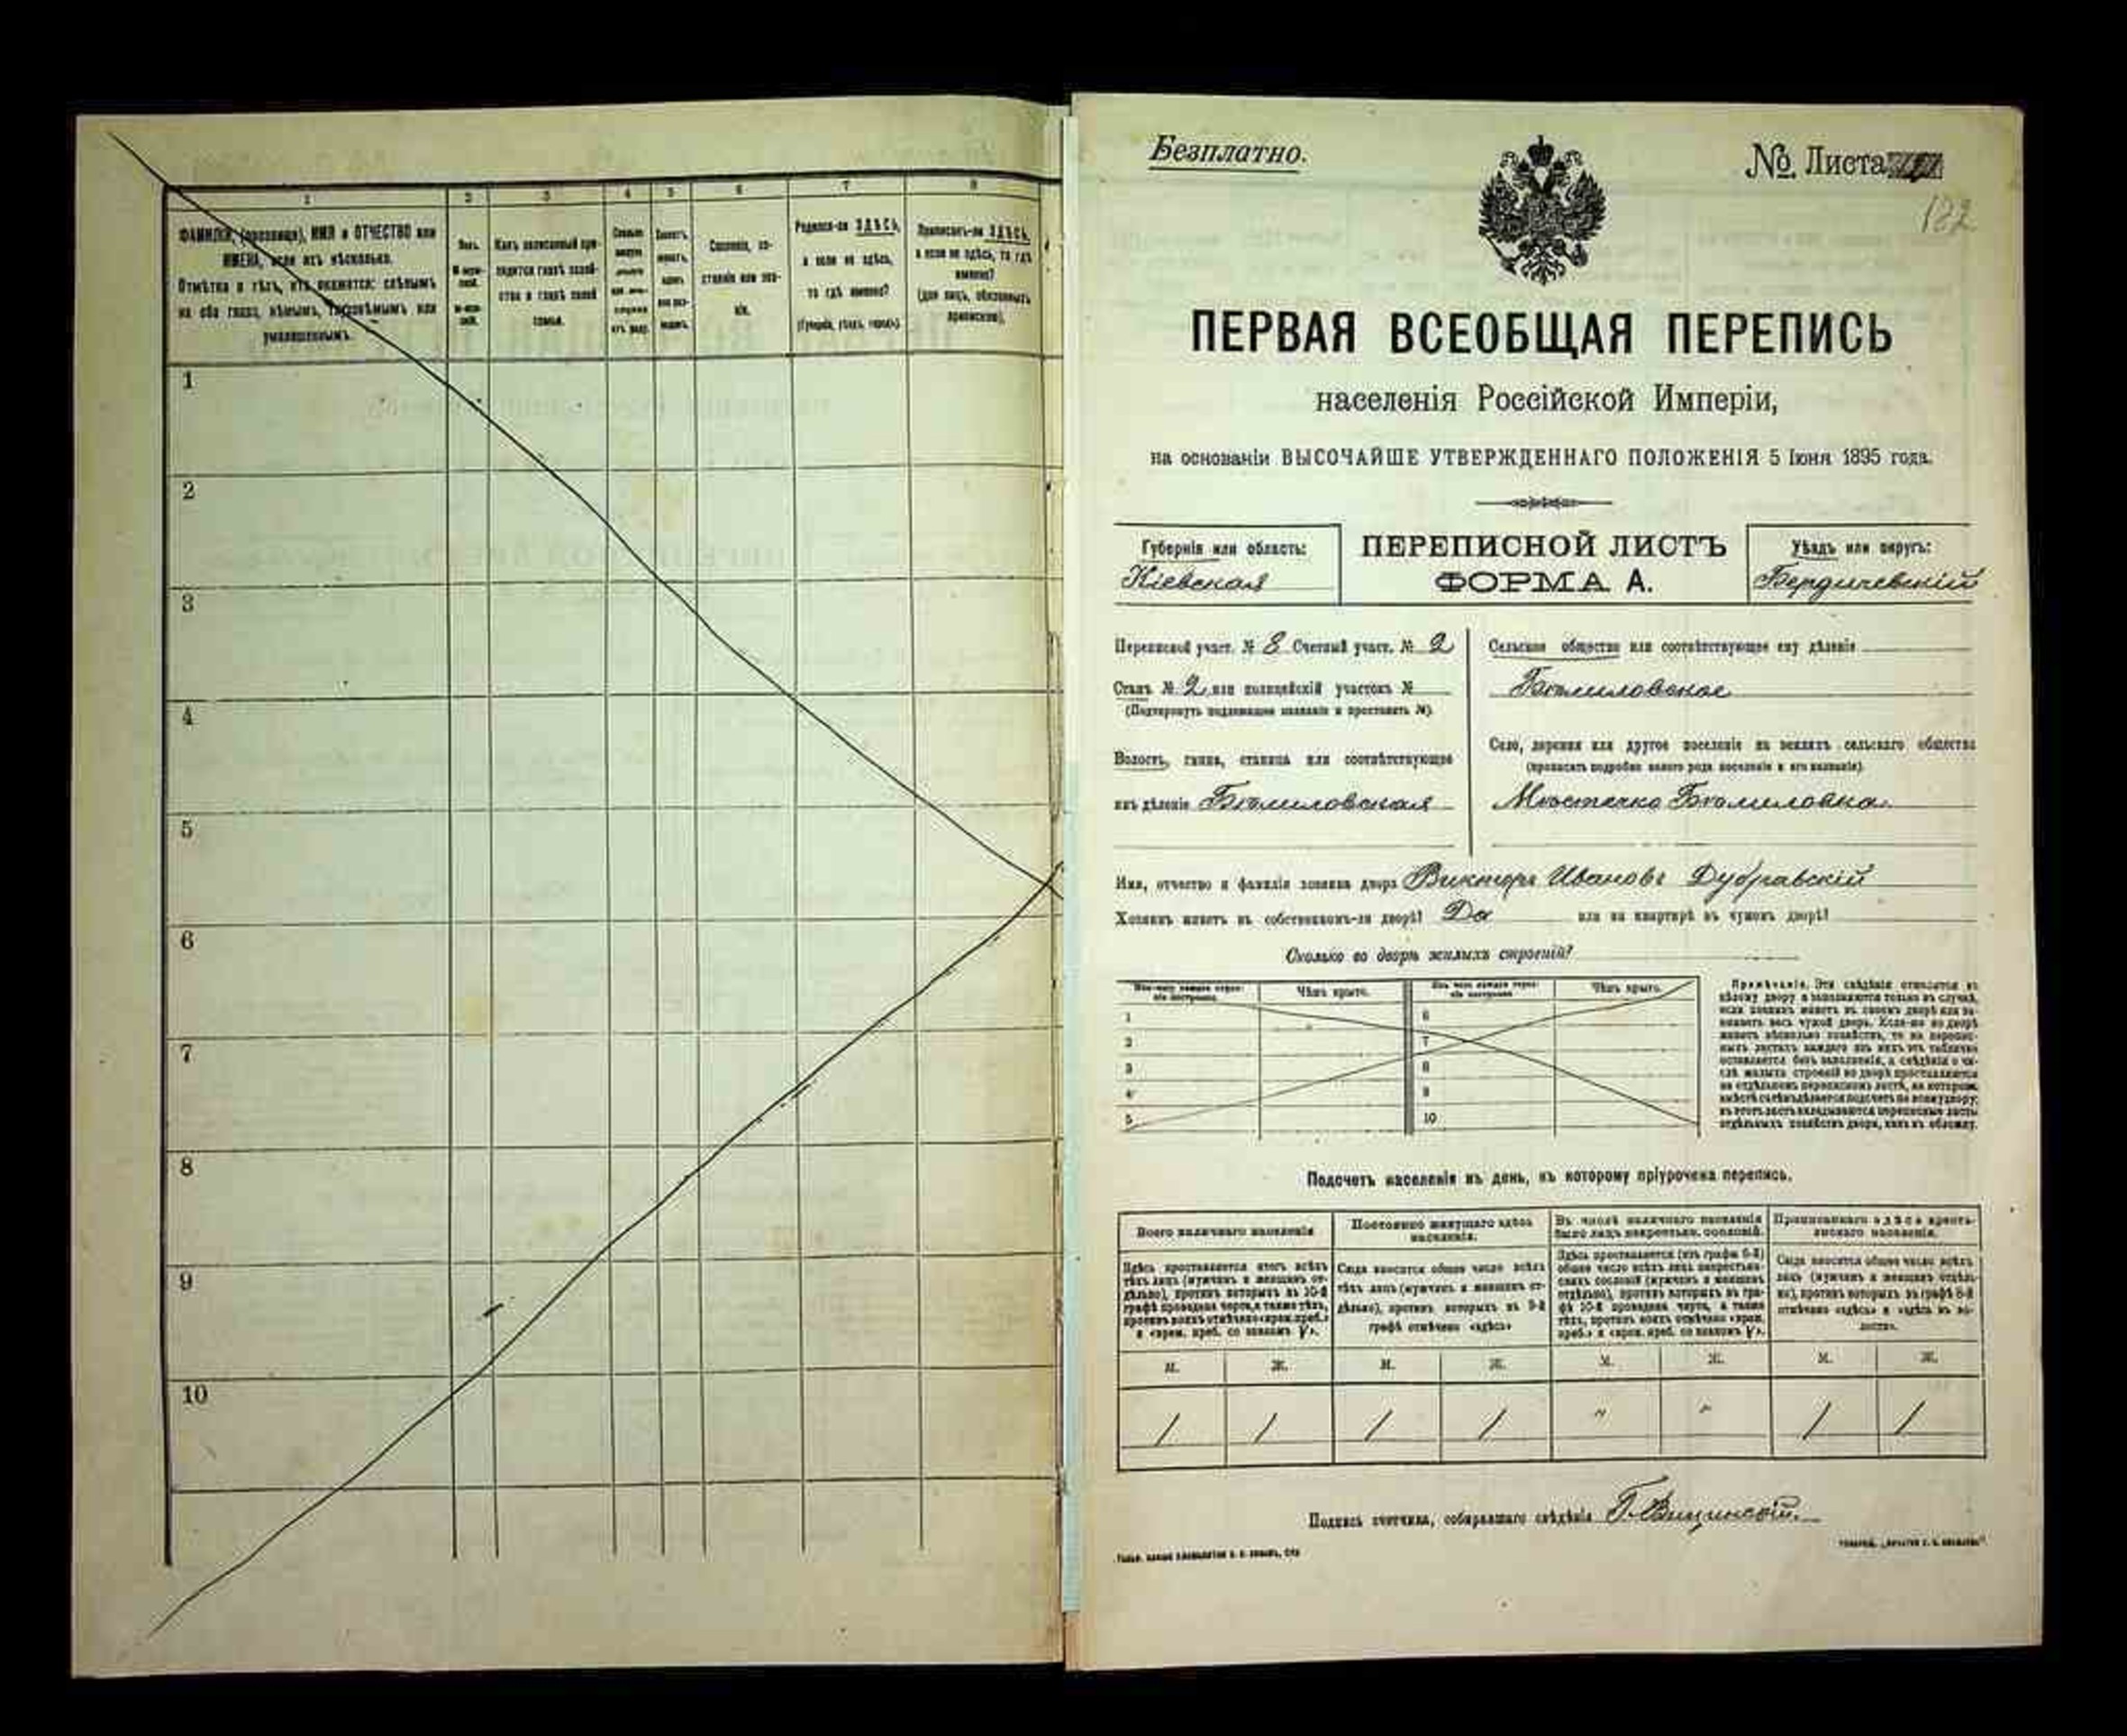 1 2 3 4 5 6 7 8
ФАМИЛІЯ, (прозвище), ИМЯ и ОТЧЕСТВО или
ИМЕНА, если ихъ нѣсколько.
Отмѣтка о тѣхъ, кто окажется: слѣпымъ
на оба глаза, нѣмымъ, глухонѣмымъ или
умалишеннымъ.
Полъ.
Какъ записанный при-
ходится главѣ хозяй-
ства и главѣ своей
семьи.
Сословіе, со-
стояніе или зва-
ніе.
Родился-ли ЗДѢСЬ,
а если не здѣсь,
то гдѣ именно?
(Губернія, уѣздъ, городъ).
Приписанъ-ли ЗДѢСЬ,
а если не здѣсь, то гдѣ
именно?
(для лицъ, обязанныхъ
припискою).
1
2
3
4
5
6
7
8
9
10
Безплатно.
№ Листа
182
ПЕРВАЯ ВСЕОБЩАЯ ПЕРЕПИСЬ
населенія Россійской Имперіи,
на основаніи ВЫСОЧАЙШЕ УТВЕРЖДЕННАГО ПОЛОЖЕНІЯ 5 Іюня 1895 года.
Губернія или область:
Кіевская
ПЕРЕПИСНОЙ ЛИСТЪ
ФОРМА А.
Уѣздъ или округъ:
Бердичевскій
Переписной участ. № 8 Счетный участ. № 2
Станъ № 2 или полицейскій участокъ №
(Подчеркнуть подлежащее названіе и проставить №).
Волость, гмина, станица или соотвѣтствующее
имъ дѣленіе Бѣлиловская
Сельское общество или соотвѣтствующее ему дѣленіе
Бѣлиловское
Село, деревня или другое поселеніе на земляхъ сельскаго общества
(прописать подробно какого рода поселеніе и его названіе).
Мѣстечко Бѣлиловка
Имя, отчество и фамилія хозяина двора Викторъ Ивановъ Дубравскій
Хозяинъ живетъ въ собственномъ-ли дворѣ? Да или на квартирѣ въ чужомъ дворѣ?
Сколько во дворѣ жилыхъ строеній?
Изъ чего каждое строе-
ніе построено.
Чѣмъ крыто.
Изъ чего каждое строе-
ніе построено.
Чѣмъ крыто.
1 6
2 7
3 8
4 9
5 10
Примѣчаніе. Эти свѣдѣнія относятся къ
цѣлому двору и заполняются только въ случаѣ,
если хозяинъ живетъ въ своемъ дворѣ или за-
нимаетъ весь чужой дворъ. Если-же во дворѣ
живетъ нѣсколько хозяйствъ, то на перепис-
ныхъ листахъ каждаго изъ нихъ эта табличка
оставляется безъ заполненія, а свѣдѣнія о чи-
слѣ жилыхъ строеній во дворѣ проставляются
на отдѣльномъ переписномъ листѣ, на которомъ
вмѣстѣ съ тѣмъ дѣлается подсчетъ по всему двору;
въ этотъ листъ вкладываются переписные листы
отдѣльныхъ хозяйствъ двора, какъ въ обложку.
Подсчетъ населенія въ день, къ которому пріурочена перепись.
Всего наличнаго населенія
Постоянно живущаго здѣсь
населенія.
Въ числѣ наличнаго населенія
было лицъ некрестьян. сословій.
Приписаннаго здѣсь кресть-
янскаго населенія.
Здѣсь проставляется итогъ всѣхъ
тѣхъ лицъ (мужчинъ и женщинъ от-
дѣльно), противъ которыхъ въ 10-й
графѣ проведена черта, а также тѣхъ,
противъ коихъ отмѣчено «врем. преб.»
и «врем. преб. со знакомъ V».
Сюда вносится общее число всѣхъ
тѣхъ лицъ (мужчинъ и женщинъ от-
дѣльно), противъ которыхъ въ 9-й
графѣ отмѣчено «здѣсь»
Здѣсь проставляется (изъ графы 6-й)
общее число всѣхъ лицъ некрестьян-
скихъ сословій (мужчинъ и женщинъ
отдѣльно), противъ которыхъ въ гра-
фѣ 10-й проведена черта, а также
тѣхъ, противъ коихъ отмѣчено «врем.
преб.» и «врем. преб. со знакомъ V».
Сюда вносится общее число всѣхъ
лицъ (мужчинъ и женщинъ отдѣль-
но), противъ которыхъ въ графѣ 8-й
отмѣчено «здѣсь» и «здѣсь въ во-
лости».
М. Ж. М. Ж. М. Ж. М. Ж.
1 1 1 1 " " 1 1
Подпись счетчика, собиравшаго свѣдѣнія